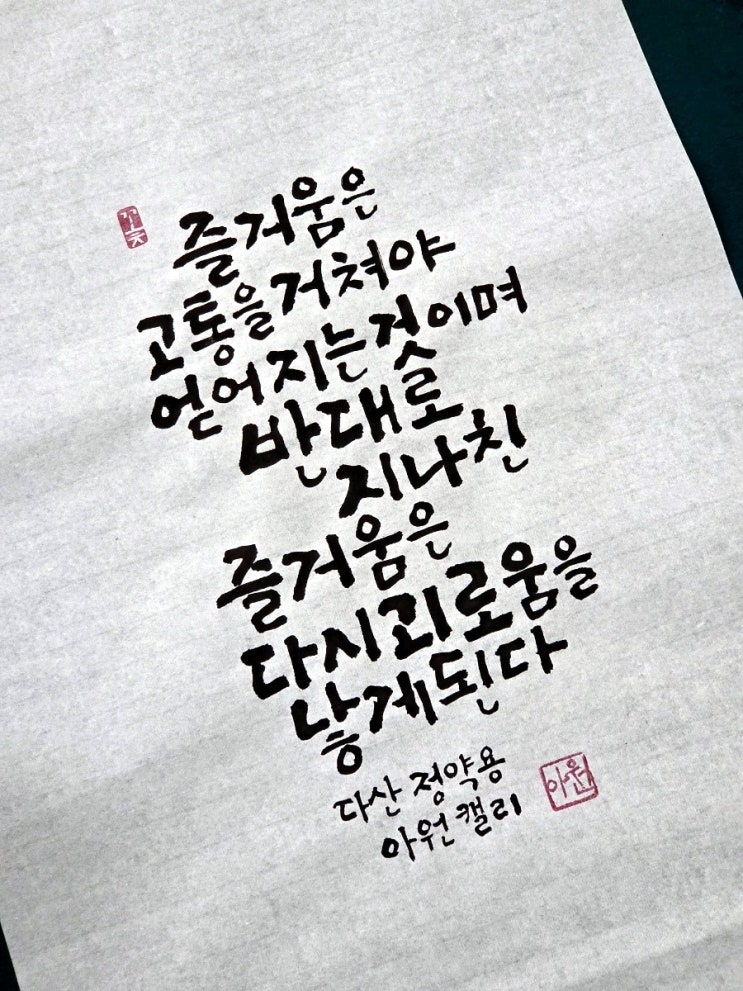 즐거움은
고통을 거쳐야
얻어지는 것이며
반대로
지나친
즐거움은
다시 괴로움을
낳게 된다
다산 정약용
아원 캘리
아원